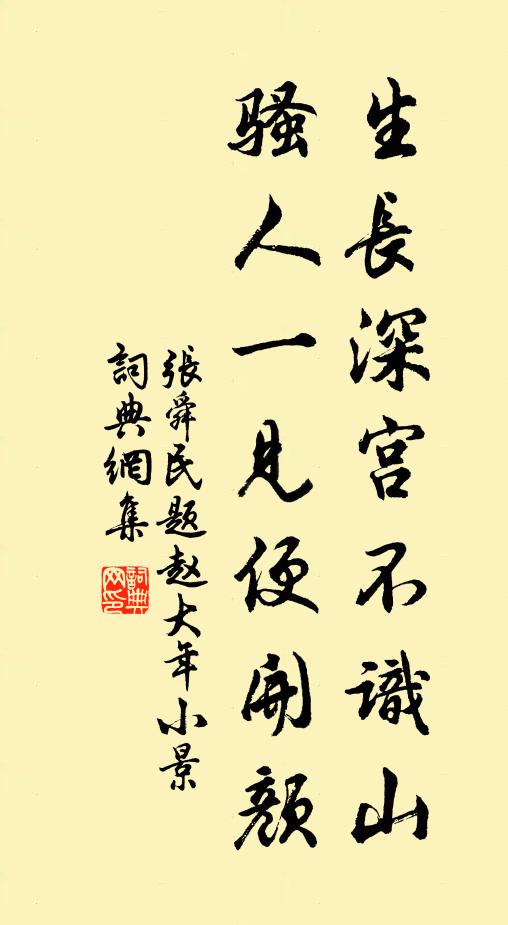 生長深宮不識山
騷人一見便開顏
張舜民題赵大年小景
詞典網集
詞典
网印